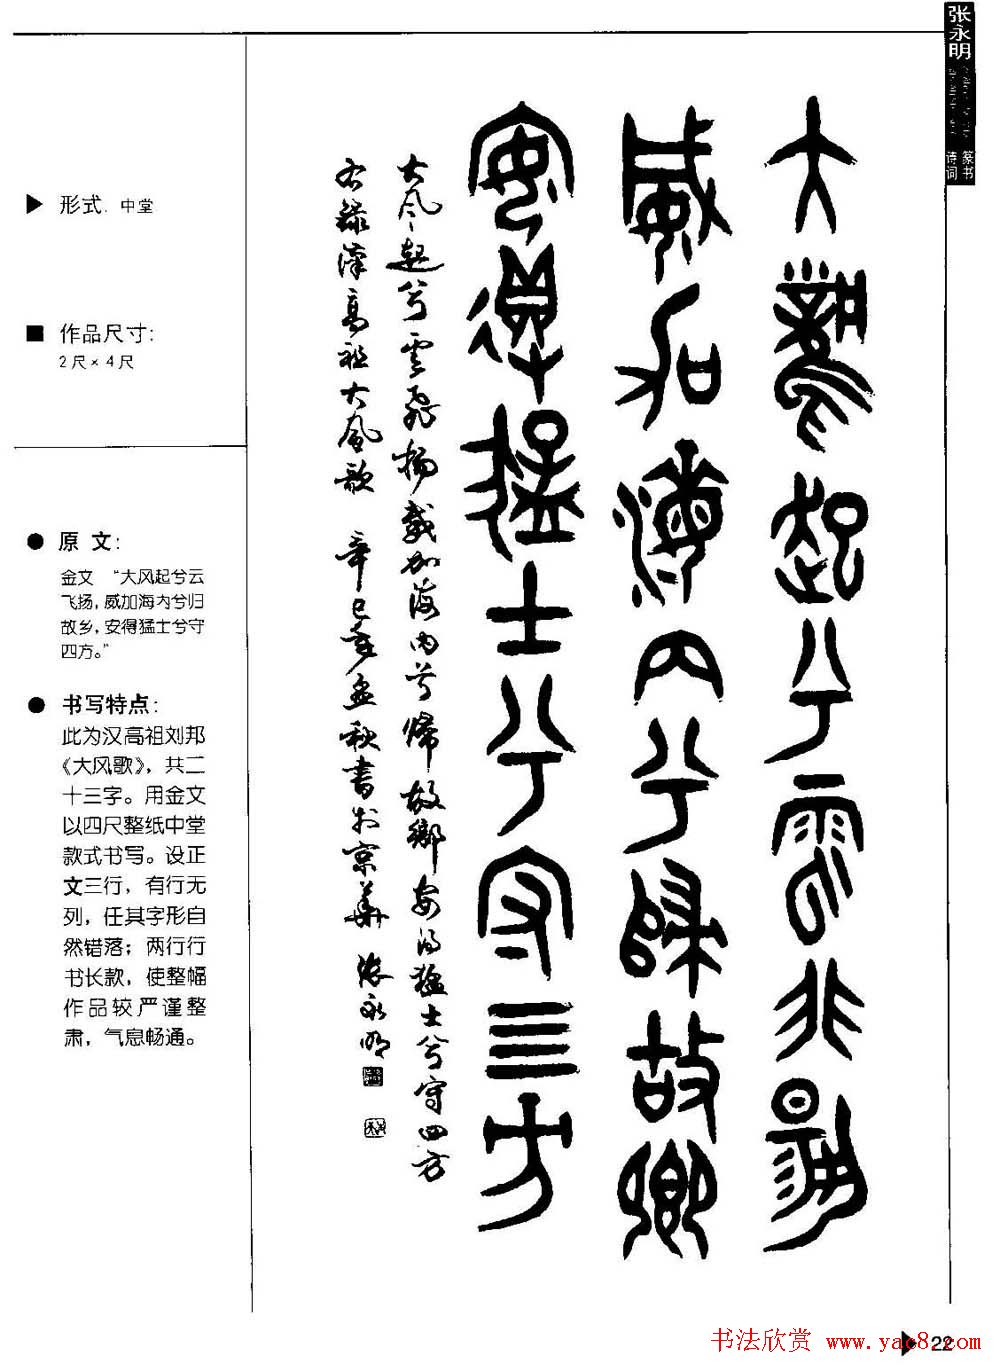 张永明
篆书
诗词
形式：中堂
作品尺寸：
2尺×4尺
原文：
金文 “大风起兮云
飞扬，威加海内兮归
故乡，安得猛士兮守
四方。”
书写特点：
此为汉高祖刘邦
《大风歌》，共二
十三字。用金文
以四尺整纸中堂
款式书写。设正
文三行，有行无
列，任其字形自
然错落；两行行
书长款，使整幅
作品较严谨整
肃，气息畅通。
大风起兮云飞扬
威加海内兮归故乡
安得猛士兮守四方
大风起兮云飛揚威加海内兮歸故鄉安得猛士兮守四方
右録漢高祖大風歌 辛巳年孟秋書於京華 張永明
22
书法欣赏 www.yac8.com